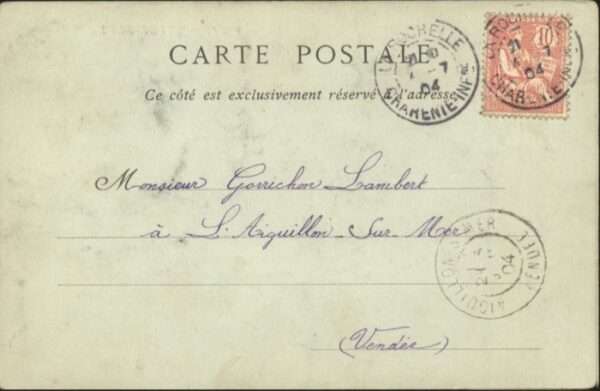 CARTE POSTALE
Ce côté est exclusivement réservé à l'adresse
LA ROCHELLE
21
7
04
CHARENTE-INFRE
10
LA ROCHELLE
21
7
04
CHARENTE-INFRE
Monsieur Gorrichon Lambert
à L'Aiguillon-Sur-Mer
(Vendée)
AIGUILLON S MER
21
04
VENDÉE